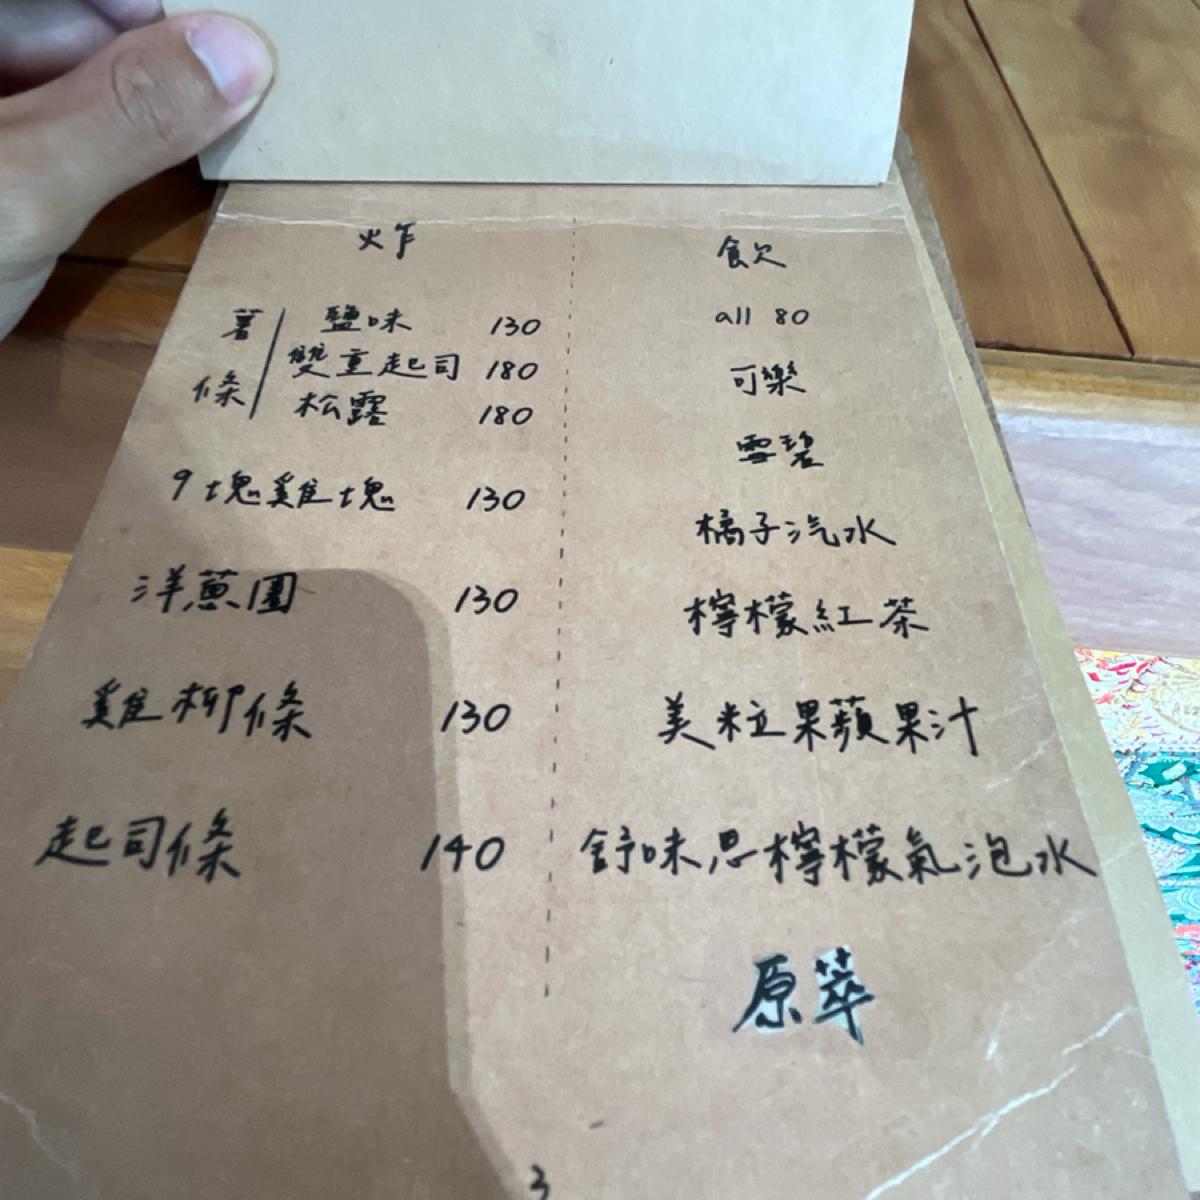 炸
薯條
鹽味 130
雙重起司 180
松露 180
9塊雞塊 130
洋蔥圈 130
雞柳條 130
起司條 140
飲
all 80
可樂
雪碧
橘子汽水
檸檬紅茶
美粒果蘋果汁
舒味思檸檬氣泡水
原萃
3